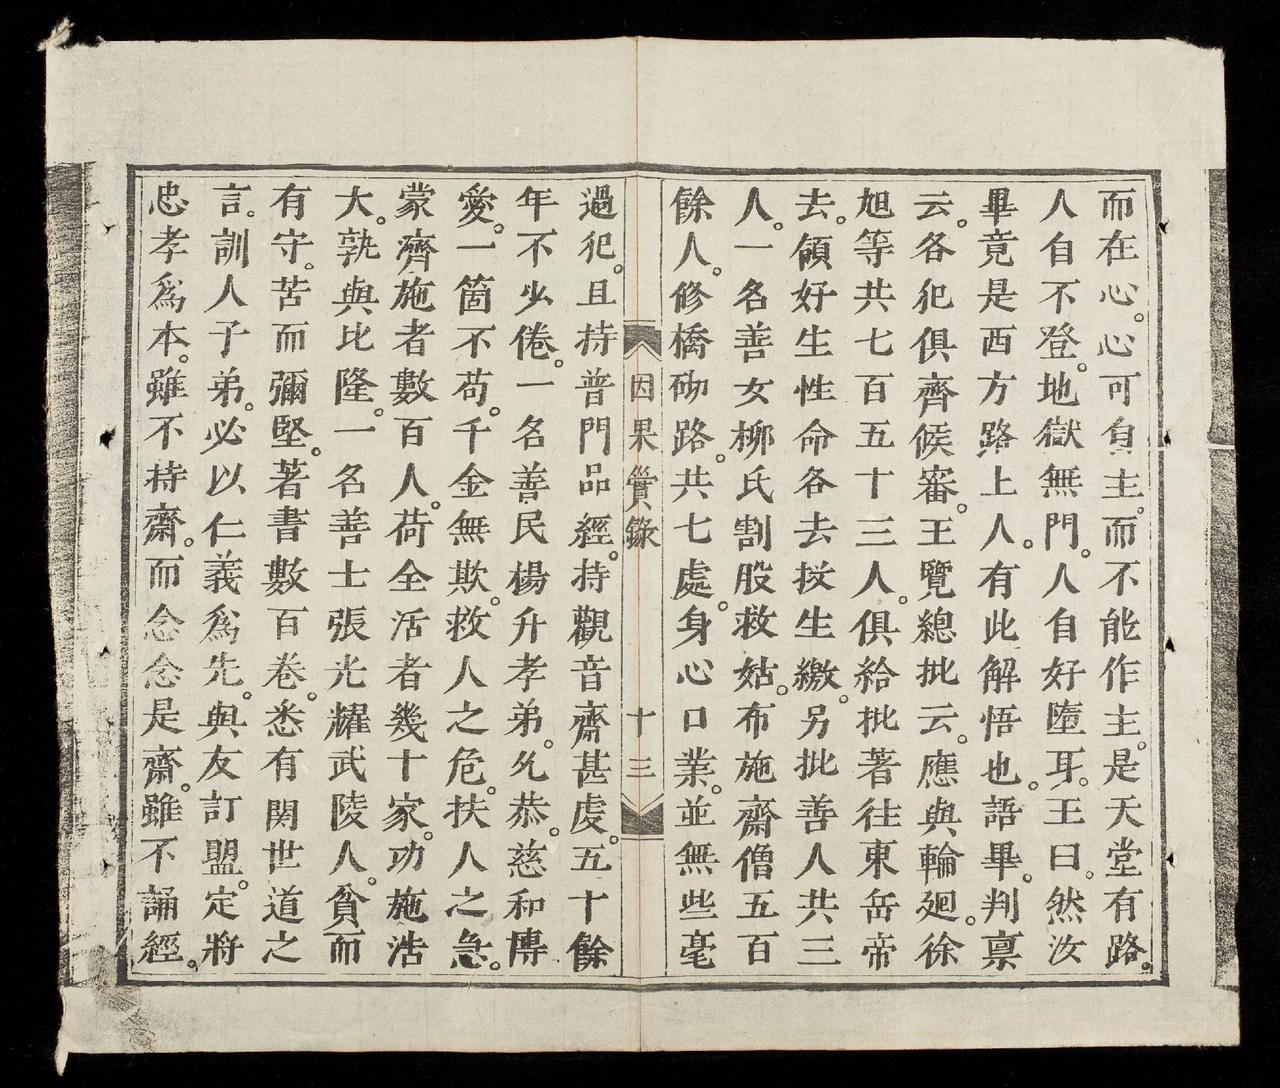 而在心。心可負主。而不能作主。是天堂有路。
人自不登。地獄無門。人自好墮耳。王曰。然汝
畢竟是西方路上人。有此解悟也。語畢。判稟
云。各犯俱齊候審。王覽總批云。應與輪廻。徐
旭等共七百五十三人。俱給批著往東岳帝
去。領好生性命各去投生繳。另批善人共三
人。一名善女柳氏割股救姑。布施齋僧五百
餘人。修橋砌路。共七處。身心口業。並無些毫
因果實錄 十三
過犯。且持普門品經。持觀音齋甚虔。五十餘
年不少倦。一名善民楊升孝弟。允恭。慈和博
愛。一箇不苟。千金無欺。救人之危。扶人之急。
蒙濟施者數百人。荷全活者幾十家。功施浩
大。孰與比隆。一名善士張光耀武陵人。貧而
有守。苦而彌堅。著書數百卷。悉有関世道之
言。訓人子弟。必以仁義爲先。與友訂盟。定將
忠孝爲本。雖不持齋。而念念是齋。雖不誦經。